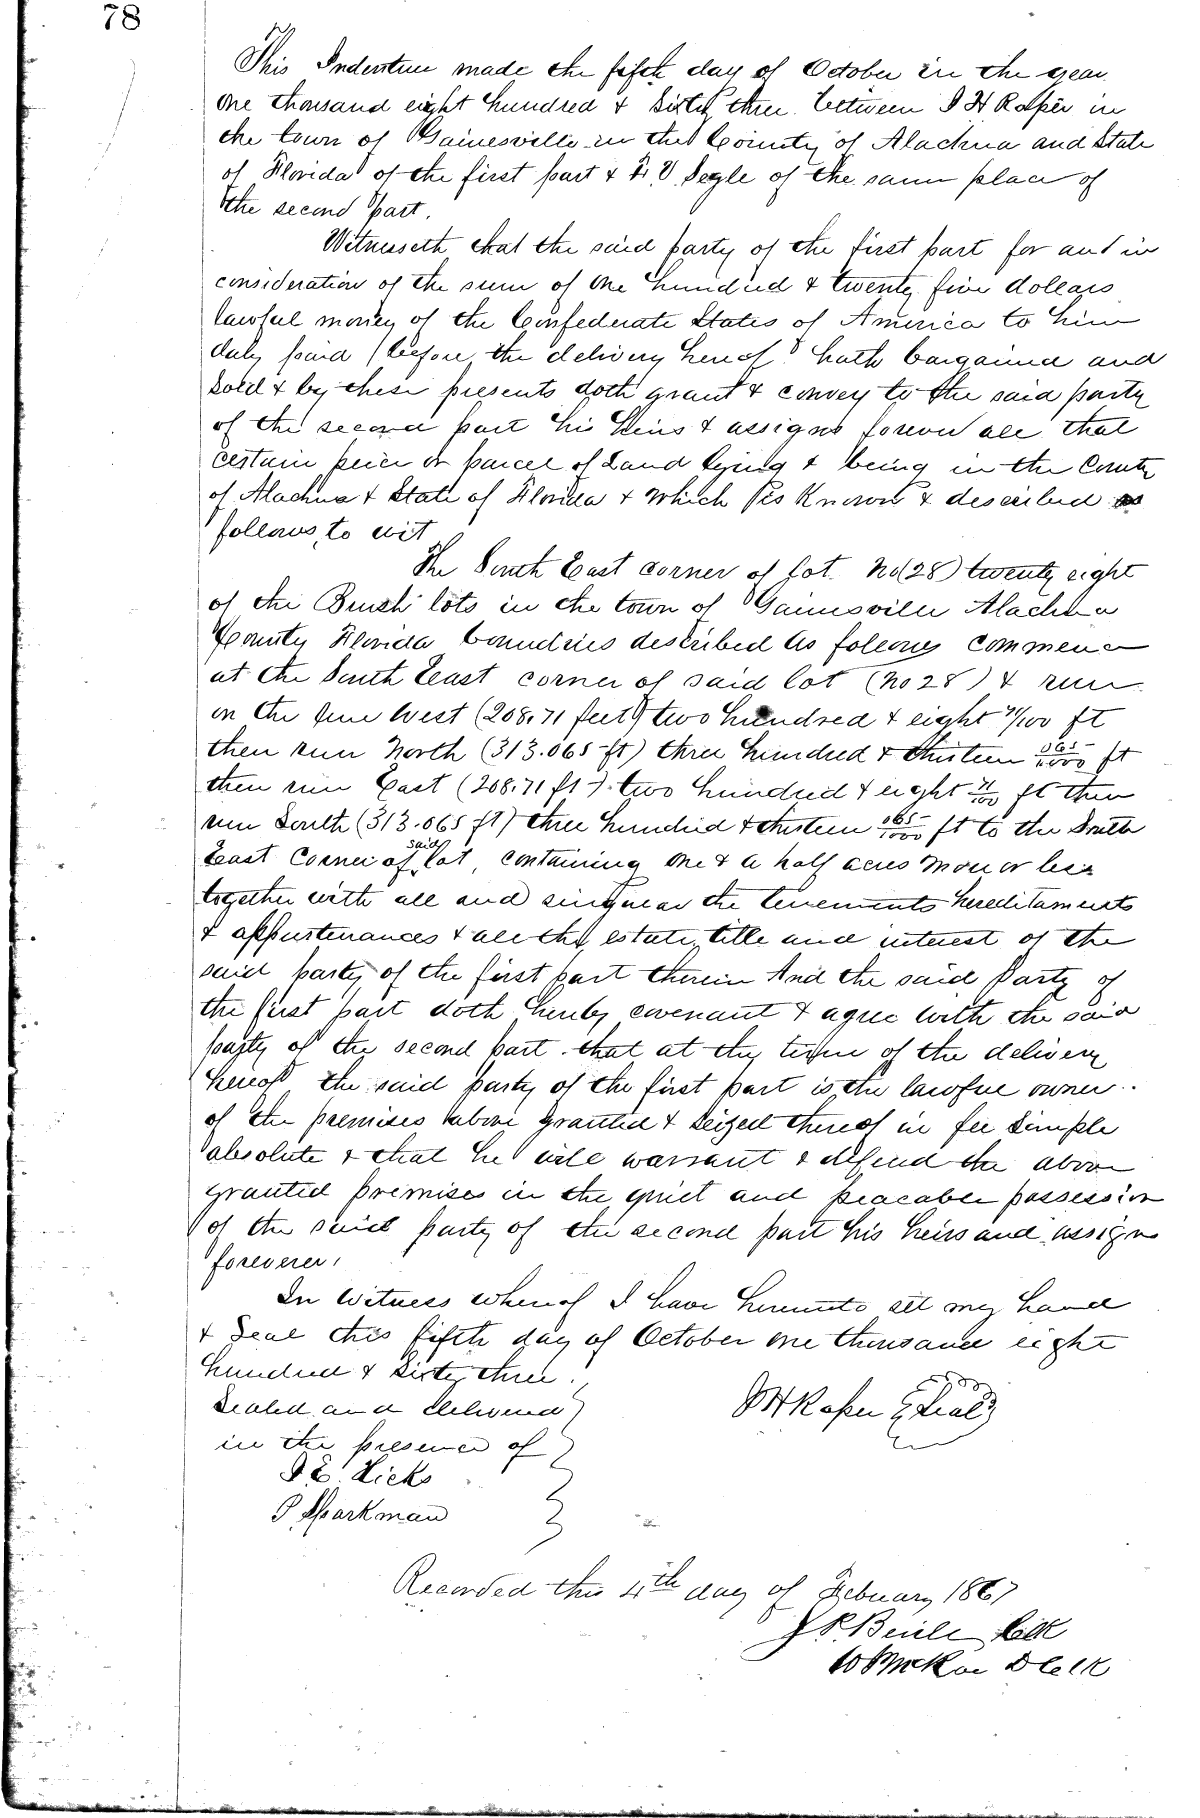 78
This Indenture made the fifth day of October in the year
one thousand eight hundred & Sixty three between I H Roper in
the town of Gainesville in the County of Alachua and State
of Florida of the first part & Segle of the same place of
the second part.
Witnesseth that the said party of the first part for and in
consideration of the sum of one hundred & twenty five dollars
lawful money of the Confederate States of America to him
duly paid before the delivery hereof hath bargained and
Sold & by these presents doth grant & convey to the said party
of the second part his Heirs & assigns forever all that
certain peice or parcel of Land lying & being in the County
of Alachua & State of Florida & which is Known & described as
follows, to wit
The South East corner of lot No (28) twenty eight
of the Brush lots in the town of Gainesville Alachua
County Florida boundries described As follows commence
at the South East corner of said lot (No 28) & run
on the line West (208.71 feet) two hundred & eight 71/100 ft
then run North (313.065 ft) three hundred & thirteen 065/1000 ft
then run East (208.71 ft) two hundred & eight 71/100 ft then
run South (313.065 ft) three hundred & thirteen 065/1000 ft to the South
East Corner of said lot, containing one & a half acres more or less
together with all and singular the tenements hereditaments
& appurtenances & all the estate, title and interest of the
said party of the first part therein And the said Party of
the first part doth hereby covenant & agree with the said
party of the second part that at the time of the delivery
hereof the said party of the first part is the lawful owner
of the premises above granted & Seized thereof in fee Simple
absolute & that he will warrant & defend the above
granted premises in the quiet and peacable possession
of the said party of the second part his heirs and assigns
foreverer.
In Witness whereof I have hereunto set my hand
& Seal this fifth day of October one thousand eight
hundred & Sixty three.
Sealed and delivered
I H Roper Seal
in the presence of
Hicks
P. Sparkman
Recorded this 4th day of Febuary 1867
Clk
D Clk